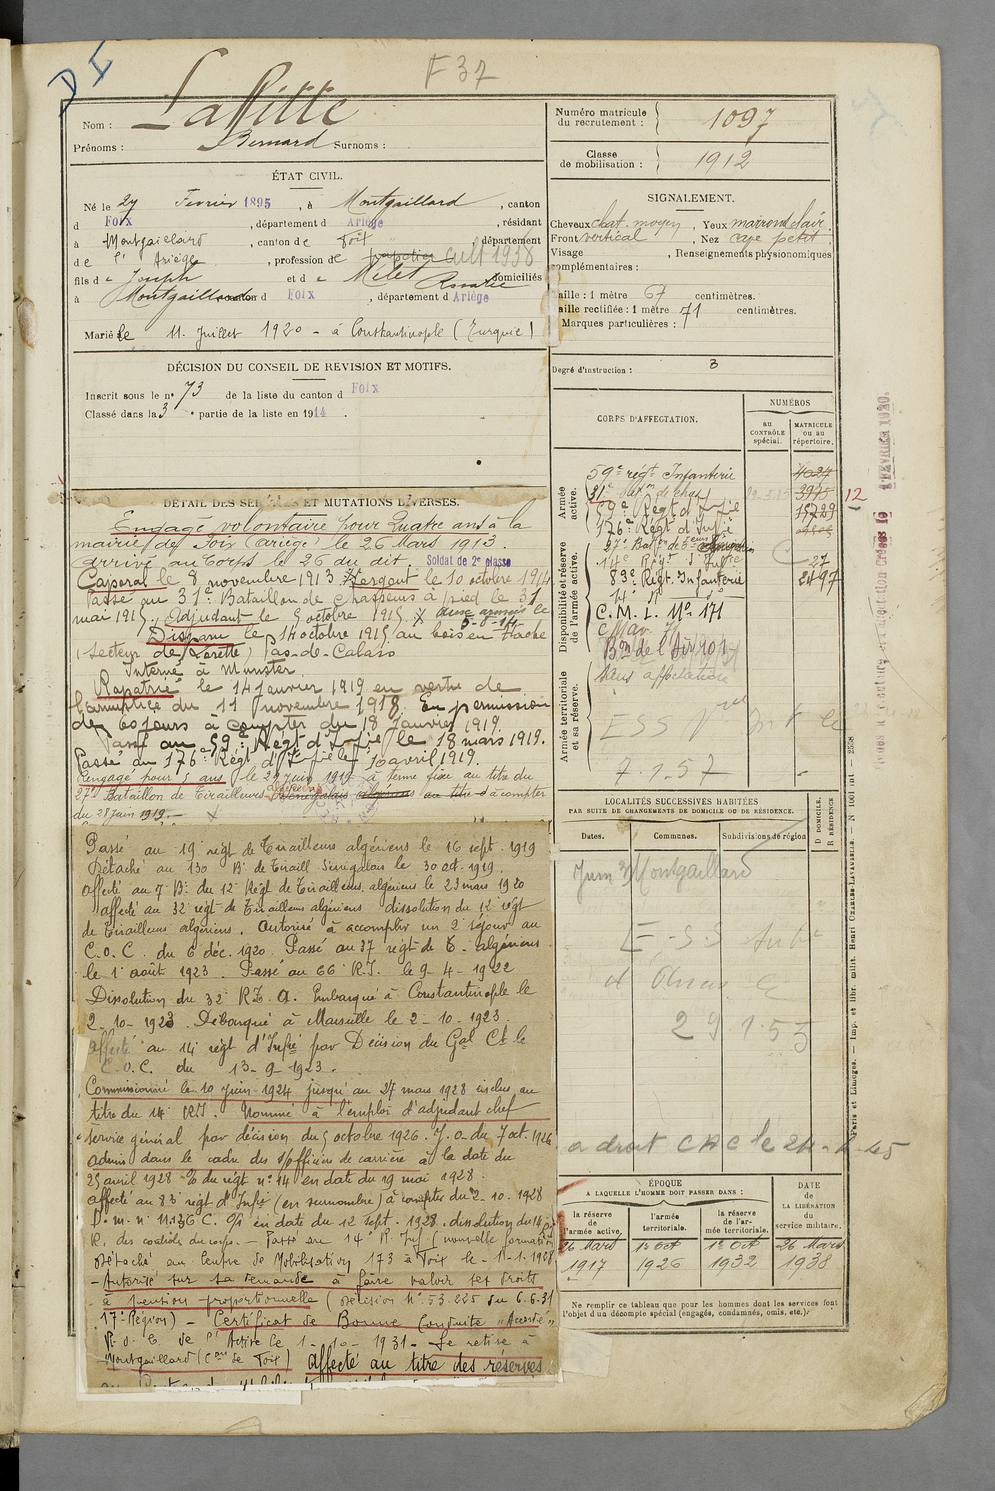 F 37
Nom : Laffitte
Prénoms : Bernard Surnoms :
ÉTAT CIVIL.
Né le 27 Fevrier 1895, à Montgaillard, canton
d Foix, département d Ariège, résidant
à Montgaillard, canton de Foix, département
de l'Ariège, profession de Cult 1938
fils de Joseph et de Milet domiciliés
à Montgaillard canton d Foix, département d Ariège
Marié le 11 Juillet 1920 - à Constantinople (Turquie)
DÉCISION DU CONSEIL DE REVISION ET MOTIFS.
Inscrit sous le n° 73 de la liste du canton d Foix
Classé dans la 3e partie de la liste en 1914.
DÉTAIL DES SERVICES ET MUTATIONS DIVERSES.
Engagé volontaire pour quatre ans à la
mairie de Foix (Ariège) le 26 Mars 1913.
arrivé au Corps le 26 du dit. Soldat de 2e classe
Caporal le 8 novembre 1913. Sergent le 10 octobre 1914
Passé au 31e Bataillon de Chasseurs à pied le 31
mai 1915. Adjudant le 5 octobre 1915 X aux armées le
5-8-14
Disparu le 14 octobre 1915 au bois en Hache
(secteur de Lorette) Pas-de-Calais
Interné à Munster.
Rapatrié le 14 janvier 1919 en vertu de
l'armistice du 11 novembre 1918. En permission
de 60 jours à compter du 18 Janvier 1919.
Passé au 59e Régt d'Infie le 18 mars 1919.
Passé au 176e Régt d'Infie le 10 avril 1919.
Rengagé pour 5 ans le 27 juin 1919 à terme fixe au titre du
27e Bataillon de Tirailleurs algériens Sénégalais algériens au titre à compter
du 28 Juin 1919.
Passé au 19e régt de Tirailleurs algériens le 16 sept. 1919
Détaché au 130 Bn de Tiraill Sénégalais le 30 oct. 1919.
affecté au 7 Bn du 12e Régt de Tirailleurs algériens le 23 mars 1920
affecté au 32e régt de Tirailleurs algériens dissolution du 12e régt
de Tirailleurs algériens. Autorisé à accomplir un 2e séjour au
C.O.C. du 6 déc. 1920. Passé au 37e régt de T. algériens
le 1er août 1923. Passé au 66 R.T. le 9-4-1922
Dissolution du 32e R.T.A. Embarqué à Constantinople le
2-10-1923. Débarqué à Marseille le 2-10-1923.
affecté au 14e régt d'Infie par Décision du Gal Ct le
C.O.C. du 13-9-1923.
Commissionné le 10 juin 1924 jusqu'au 27 mars 1928 inclus au
titre du 14e R.I. Nommé à l'emploi d'adjudant chef
service général par décision du 5 octobre 1926. J.O. du 7 oct. 1926
admis dans le cadre des s/officiers de carrière à la date du
25 avril 1928 O du régt n° 14 en date du 19 mai 1928
affecté au 83e régt d'Infie (en surnombre) à compter du 2-10-1928
D.m. n° 11.136 C. en date du 12 sept. 1928. dissolution du 14e
R. des contrôles du corps. - Passé au 14e R. Inf (nouvelle formation
Détaché au Centre de Mobilisation 173 à Foix le
- Autorisé sur sa demande à faire valoir ses droits
à pension proportionnelle (Décision N° 53.225 du 6.6.31
17e Région) - Certificat de Bonne Conduite "Accordé"
de l'Active le 1-10-1931 - Se retire à
Montgaillard (Con de Foix) Affecté au titre des réserves
Numéro matricule du recrutement : 1097
Classe de mobilisation : 1912
SIGNALEMENT.
Cheveux chat. moyen, Yeux marron clair
Front vertical, Nez petit
Visage , Renseignements physionomiques
complémentaires :
Taille : 1 mètre 67 centimètres.
Taille rectifiée : 1 mètre 71 centimètres.
Marques particulières :
Degré d'instruction : 3
CORPS D'AFFECTATION.
NUMÉROS
au CONTRÔLE spécial.
MATRICULE ou au répertoire.
Armée active.
59e régt Infanterie 4024
31e 3975 12
59e Régt d'Infie 15729
176e Régt d'Infie
Disponibilité et réserve de l'armée active.
14e Régt d'Infie 27
83e Régt. Infanterie 2497
C.M.I. N° 171
Armée territoriale et sa réserve.
Sans affectation
ESS
7.1.57
LOCALITÉS SUCCESSIVES HABITÉES
PAR SUITE DE CHANGEMENTS DE DOMICILE OU DE RÉSIDENCE.
Dates. Communes. Subdivisions de région
D DOMICILE. R RÉSIDENCE
Juin Montgaillard
E.S.S
29.1.55
a droit CAC le
ÉPOQUE
A LAQUELLE L'HOMME DOIT PASSER DANS :
DATE DE LA LIBÉRATION du service militaire.
la réserve de l'armée active.
l'armée territoriale.
la réserve de l'armée territoriale.
26 Mars 1917
1er Oct 1926
1er Oct 1932
26 Mars 1938
Ne remplir ce tableau que pour les hommes dont les services font
l'objet d'un décompte spécial (engagés, condamnés, omis, etc.).
Paris et Limoges. — Imp. et libr. milit. Henri CHARLES-LAVAUZELLE. — N° 1001 int — 2558